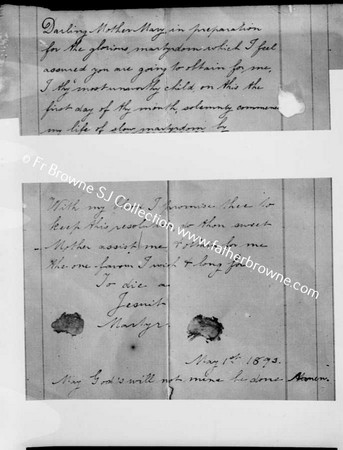 Darling Mother Mary, in preparation
for the glorious martyrdom which I feel
assured you are going to obtain for me,
I thy most unworthy child on this the
first day of thy month, solemnly commence
my life of slow martyrdom by
With my I promise thee to
keep this if thou sweet
Mother assist me & obtain for me
the one favour I wish & long for
To die a
Jesuit
Martyr
May 1st 1893.
May God's will not mine be done Amen.
© Fr Browne SJ Collection www.fatherbrowne.com